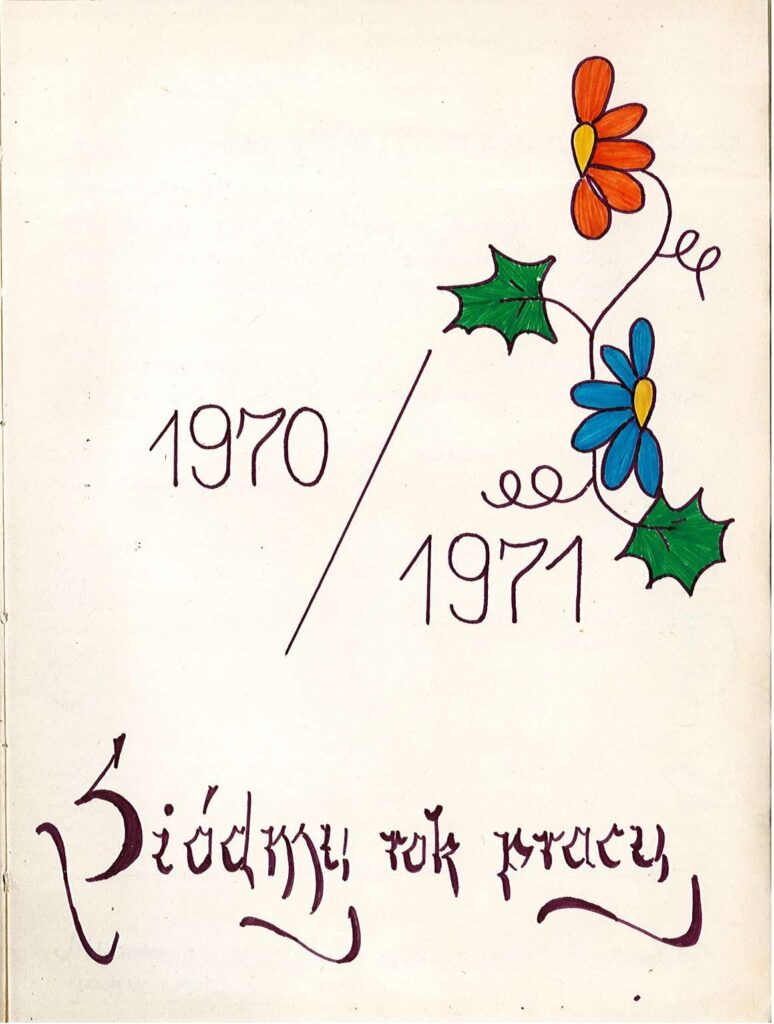 1970 /
1971
Siódmy rok pracy